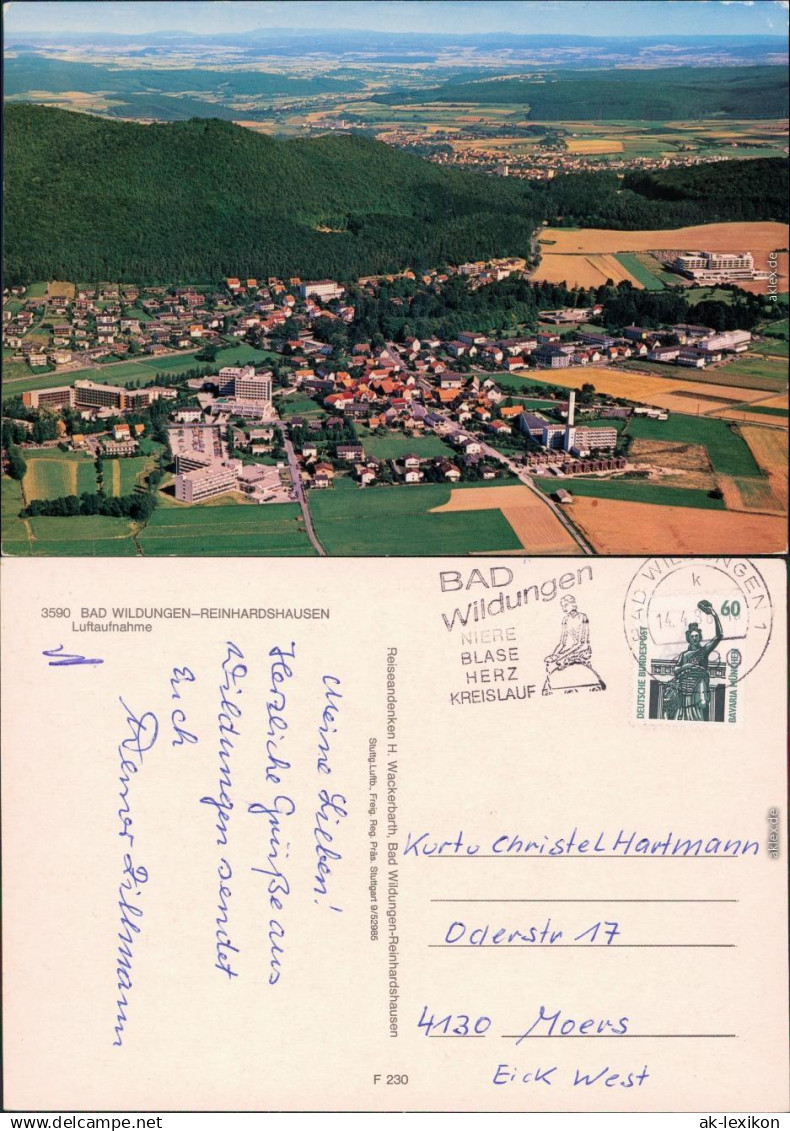 aklex.de
3590 BAD WILDUNGEN–REINHARDSHAUSEN
Luftaufnahme
Meine Lieben!
Herzliche Grüße aus
Wildungen sendet
Euch
Werner Dillmann
Reiseandenken H. Wackerbarth, Bad Wildungen-Reinhardshausen
Stuttg.Luftb., Freig. Reg. Präs. Stuttgart 9/52985
F 230
BAD
Wildungen
NIERE
BLASE
HERZ
KREISLAUF
BAD WILDUNGEN 1
k
14.4.
60
DEUTSCHE BUNDESPOST
BAVARIA MÜNCHEN
Kurt u Christel Hartmann
Oderstr 17
4130 Moers
Eick West
aklex.de
ak-lexikon
ak-lexikon.com